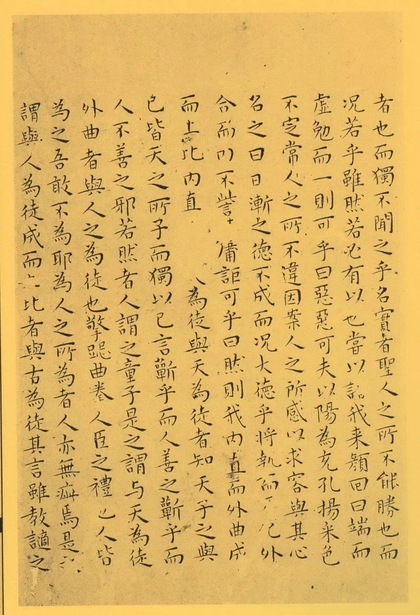 者也而獨不聞之乎名實者聖人之所不能勝也而
况若乎雖然若必有以也嘗以語我来顏回曰端而
虛勉而一則可乎曰惡惡可夫以陽為充孔揚采色
不定常人之所不違因案人之所感以求容與其心
名之曰日漸之德不成而况大德乎將執而化外
合而内不訾庸詎可乎曰然則我内直而外曲成
而上比内直為徒與天為徒者知天子之與
已皆天之所子而獨以已言蘄乎而人善之蘄乎而
人不善之邪若然者人謂之童子是之謂与天為徒
外曲者與人之為徒也擎跽曲拳人臣之禮也人皆
為之吾敢不為耶為人之所為者人亦無疵焉是
謂與人為徒成而比者與古為徒其言雖教讁之